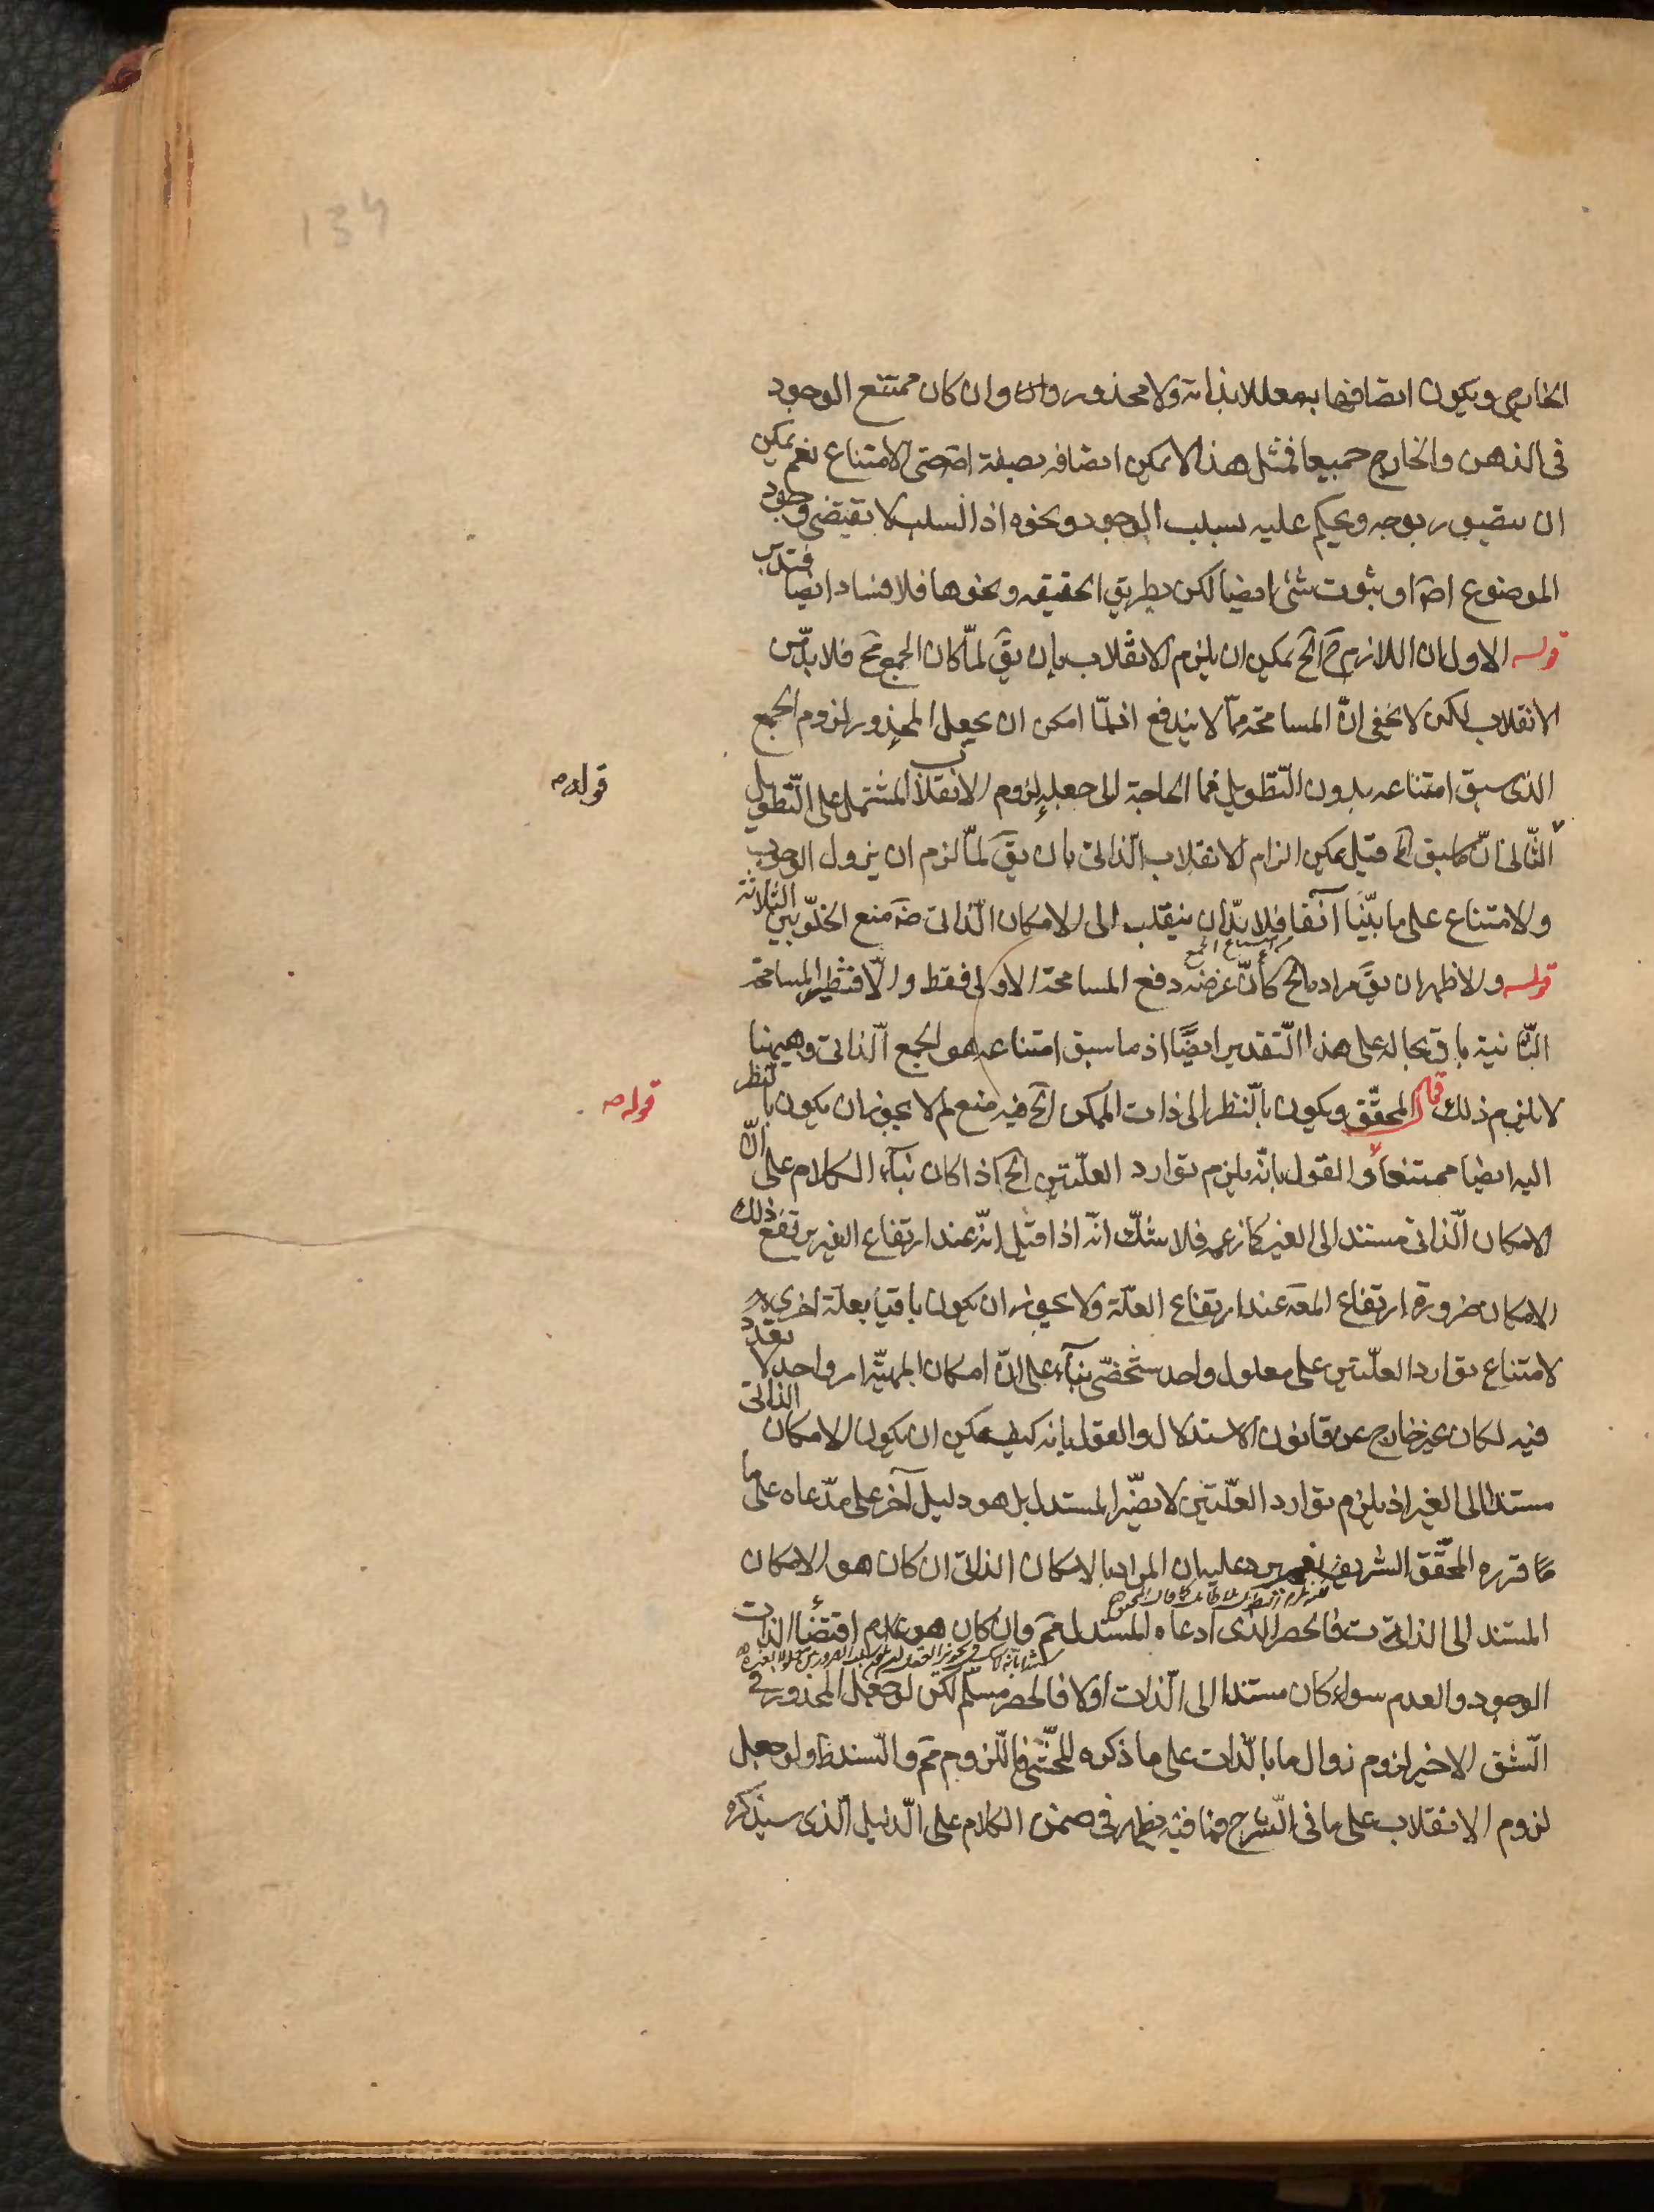 134
الخارج ويكون اتصافها به معللا بذاته ولا محذور وان كان ممتنع الوجود
فى الذهن والخارج جميعا فمثل هذا لا يمكن اتصافه بصفة اصّ حتى الامتناع نعم يمكن
ان يتصور بوجه ويحكم عليه بسلب الوجود ونحوه اذ السلب لا يقتضى وجود
الموضوع اصّ او بثبوت شئ ايضا لكن بطريق الحقيقه ونحوها فلا فساد ايضا فتدبّر
قوله الاول ان اللازم ح الخ يمكن ان يلزم الانقلاب بان يقَ لمّا كان الجمع مَح فلا بدّ من
الانقلاب لكن لا يخفى انّ المسامحة ممّا لا يندفع اذ لمّا امكن ان يجعل المحذور لزوم الجمع
الذى سبق امتناعه بدون التّطويل فما الحاجة الى جعله لزوم الانقلاب المشتمل على التّطويل
قوله ره
الثّانى انّ ما سبق الخ قيل يمكن الزام الانقلاب الذّاتى بان يقَ لمّا لزم ان يزول الوجوب
والامتناع على ما بيّنّا آنفا فلا بدّ ان ينقلب الى الامكان الذّاتى ضَ منع الخلوّ بين الثلاثة
امتناع الجمع
قوله والاظهر ان يقَ مراده الخ كأنّ غرضه دفع المسامحة الاولى فقط والّا فنظير المسامحة
الثّانية باق بحاله على هذا التّقدير ايضًا اذ ما سبق امتناعه هو الجمع الذّاتى وهيهنا
لا يلزم ذلك قال المحقّق ويكون بالنّظر الى ذات الممكن الخ فيه منع لم لا يجوز ان يكون بالنظر
قوله ره
اليه ايضا ممتنعا والقول بانّه يلزم توارد العلّتين الخ اذا كان بناء الكلام على انّ
الامكان الذّاتى مستند الى الغير كما زعمه فلا شكّ انّه اذا قيل انّه عند ارتفاع الغير يرتفع ذلك
الامكان ضرورة ارتفاع المعَ عند ارتفاع العلّة ولا يجوز ان يكون باقيا بعلّة اخرى
لامتناع توارد العلّتين على معلول واحد شخصىّ بناء على انّ امكان المهيّة امر واحد لا تعدّد
فيه لكان غير خارج عن قانون الاستدلال والقول بانه كيف يمكن ان يكون الامكان الذاتى
مستندا الى الغير اذ يلزم توارد العلّتين لا يضرّ المستدل بل هو دليل آخر على مدّعاه على ما
قرره المحقّق الشريف نعم يرد عليه ان المراد بالامكان الذاتى ان كان هو الامكان
المستند الى الذات فالحصر الذى ادعاه المستدل مَم وان كان هو عدم اقتضاء الذات
الوجود والعدم سواء كان مستندا الى الذّات اولا فالحصر مسلّم لكن لو جعل المحذور فى
الشّق الاخير لزوم زوال ما بالذّات على ما ذكره المحشى فاللّزوم مَم والسند ظَ ولو جعل
لزوم الانقلاب على ما فى الشّرح فما فيه يظهر فى ضمن الكلام على الدّليل الّذى سيذكره